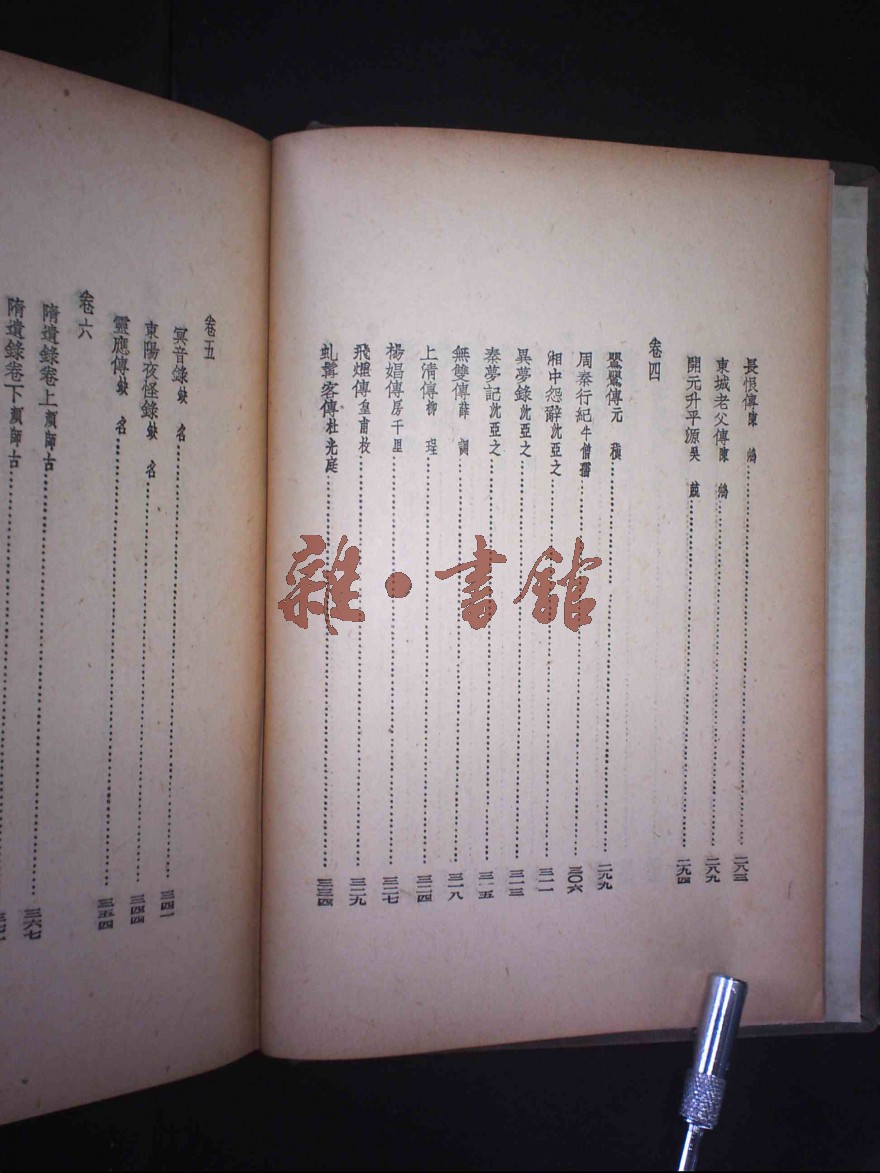 長恨傳 陳鴻 二八三
東城老父傳 陳鴻 二八九
開元升平源 吳兢 二九四
卷四
鶯鶯傳 元稹 二九九
周秦行紀 牛僧孺 三〇六
湘中怨辭 沈亞之 三一一
異夢錄 沈亞之 三一三
秦夢記 沈亞之 三一五
無雙傳 薛調 三一八
上清傳 柳珵 三二四
楊娼傳 房千里 三二七
飛煙傳 皇甫枚 三二九
虬髯客傳 杜光庭 三三四
卷五
冥音錄 缺名 三四一
東陽夜怪錄 缺名 三四四
靈應傳 缺名 三五四
卷六
隋遺錄卷上 顏師古 三六七
隋遺錄卷下 顏師古
雜·書館